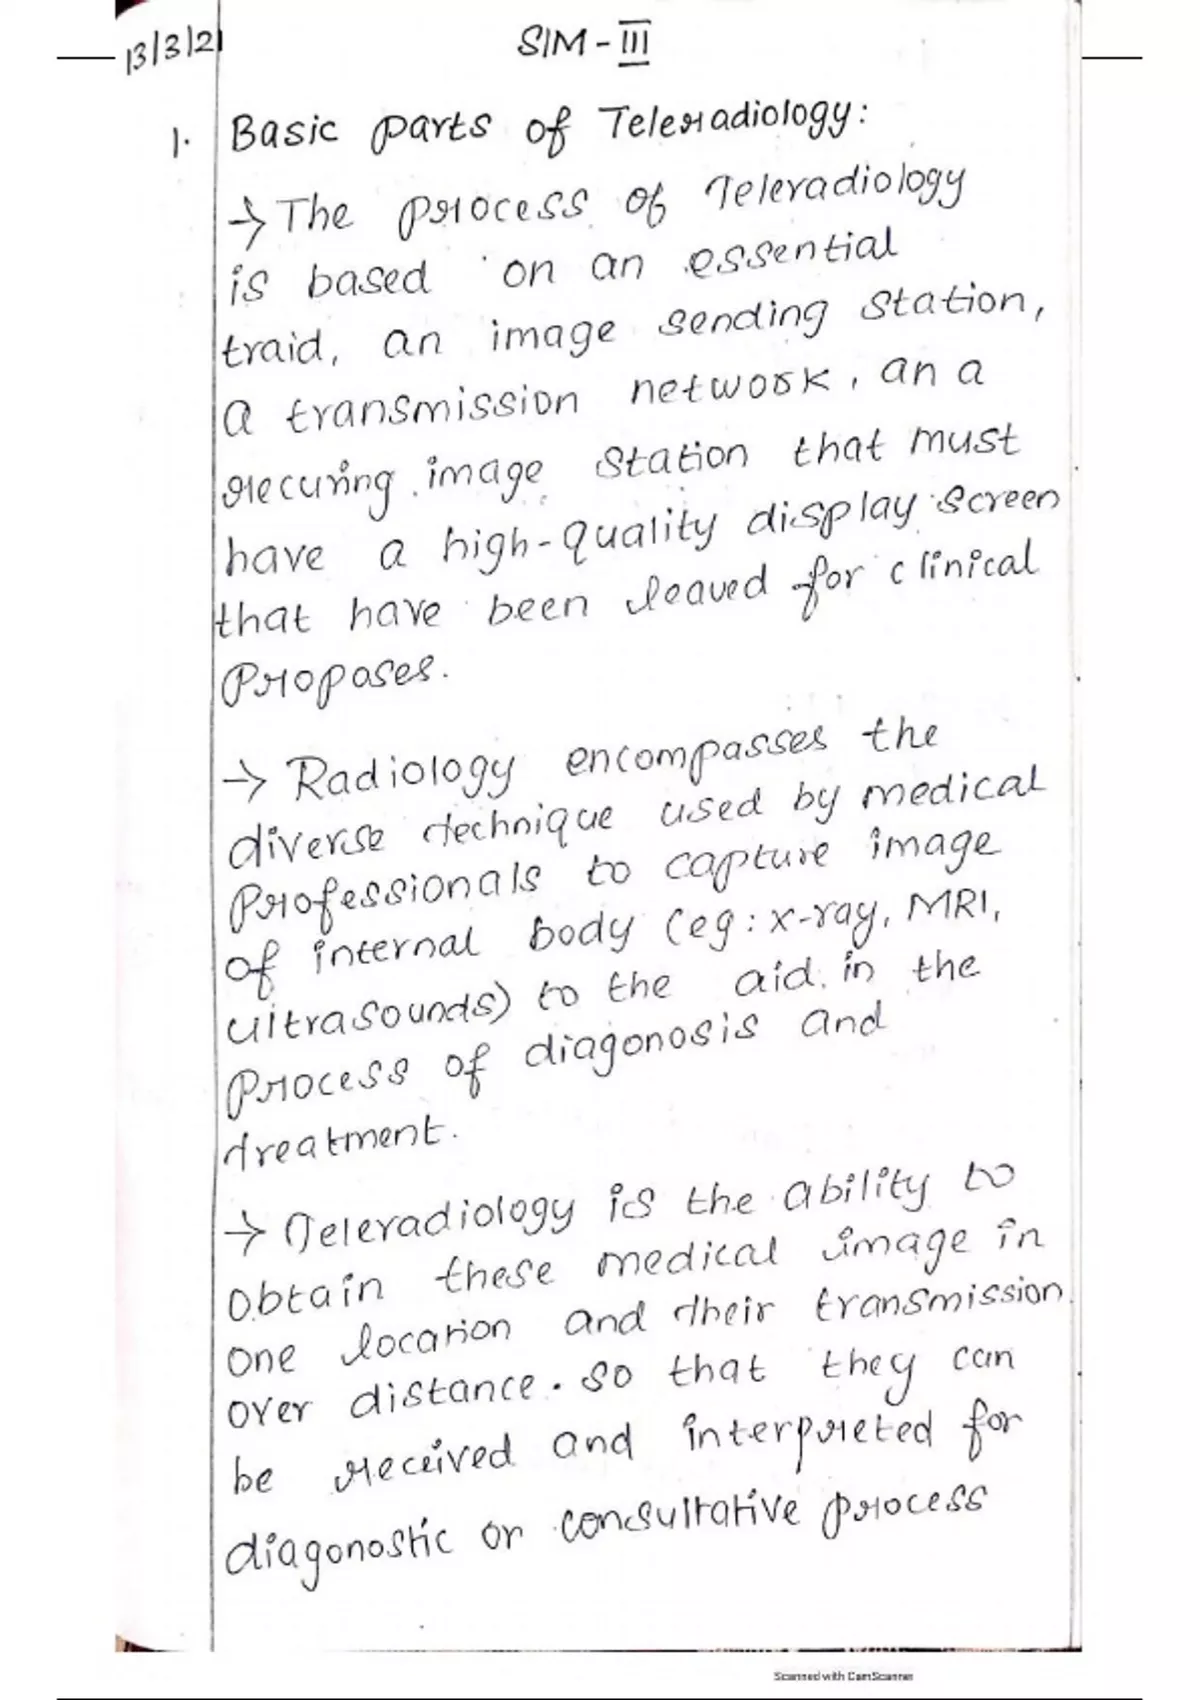 13/3/21
SIM - III
1. Basic parts of Teleradiology:
→ The process of Teleradiology
is based on an essential
traid, an image sending station,
a transmission network, an a
recuring image station that must
have a high-quality display screen
that have been leaved for clinical
Proposes.
→ Radiology encompasses the
diverse technique used by medical
Professionals to capture image
of internal body (eg: x-ray, MRI,
ultrasounds) to the aid in the
Process of diagonosis and
treatment.
→ Teleradiology is the ability to
obtain these medical image in
one location and their transmission
over distance. so that they can
be received and interpreted for
diagonostic or consultative process
Scanned with CamScanner